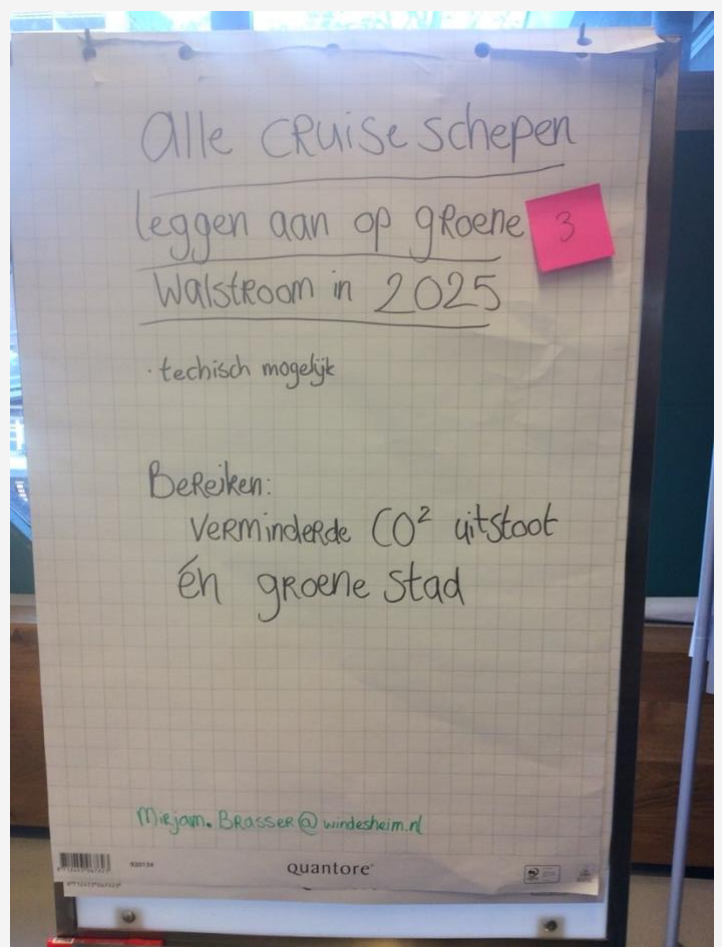 alle cruise schepen
leggen aan op groene
3
walstroom in 2025
· techisch mogelijk
Bereiken:
verminderde CO² uitstoot
én groene stad
Mirjam.Brasser@windesheim.nl
quantore